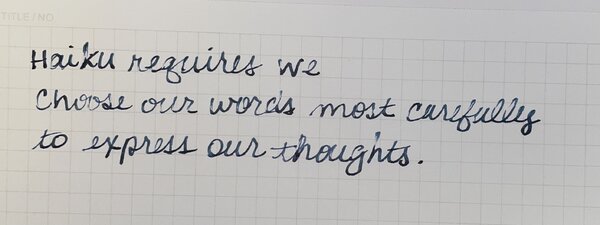 TITLE/NO
Haiku requires we
choose our words most carefully
to express our thoughts.